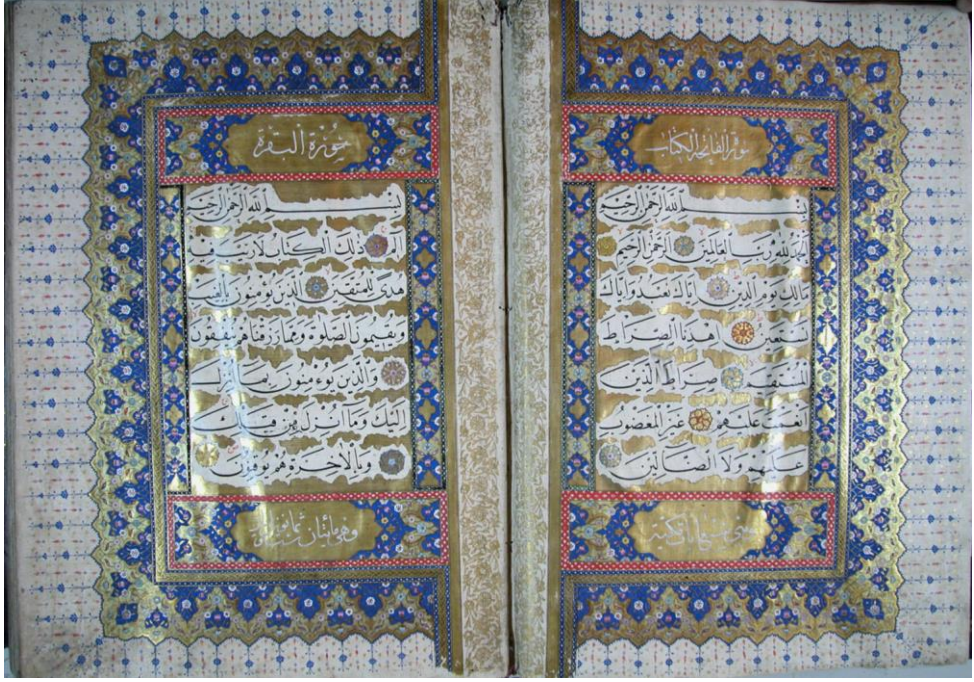 سورة الفاتحة الكتاب
بسم الله الرحمن الرحيم
الحمد لله رب العالمين الرحمن الرحيم
مالك يوم الدين اياك نعبد واياك
نستعين اهدنا الصراط
المستقيم صراط الذين
انعمت عليهم غير المغضوب
عليهم ولا الضالين
وهي سبع آيات مكية
سورة البقرة
بسم الله الرحمن الرحيم
الم ذلك الكتاب لا ريب فيه
هدى للمتقين الذين يؤمنون بالغيب
ويقيمون الصلوة ومما رزقناهم ينفقون
والذين يؤمنون بما انزل
اليك وما انزل من قبلك
وبالاخرة هم يوقنون
وهي مائتان